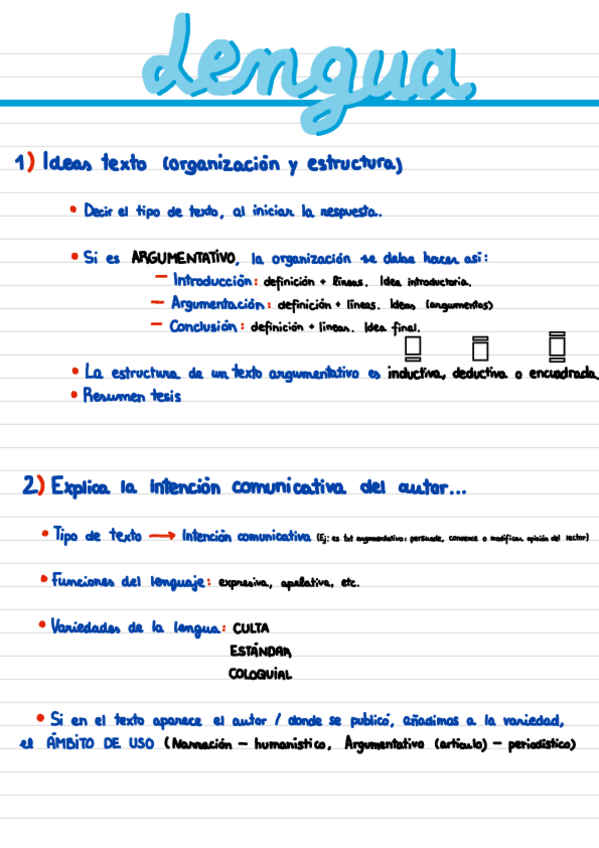 Lengua
1) Ideas texto (organización y estructura)
• Decir el tipo de texto, al iniciar la respuesta.
• Si es ARGUMENTATIVO, la organización se debe hacer así:
— Introducción: definición + líneas. Idea introductoria.
— Argumentación: definición + líneas. Ideas (argumentos)
— Conclusión: definición + líneas. Idea final.
• La estructura de un texto argumentativo es inductiva, deductiva o encuadrada.
• Resumen tesis
2) Explica la intención comunicativa del autor...
• Tipo de texto → Intención comunicativa (Ej: es txt argumentativo: persuade, convence o modificar opinión del lector)
• Funciones del lenguaje: expresiva, apelativa, etc.
• Variedades de la lengua: CULTA
ESTÁNDAR
COLOQUIAL
• Si en el texto aparece el autor / donde se publicó, añadimos a la variedad,
el ÁMBITO DE USO (Narración – humanístico, Argumentativo (artículo) – periodístico)